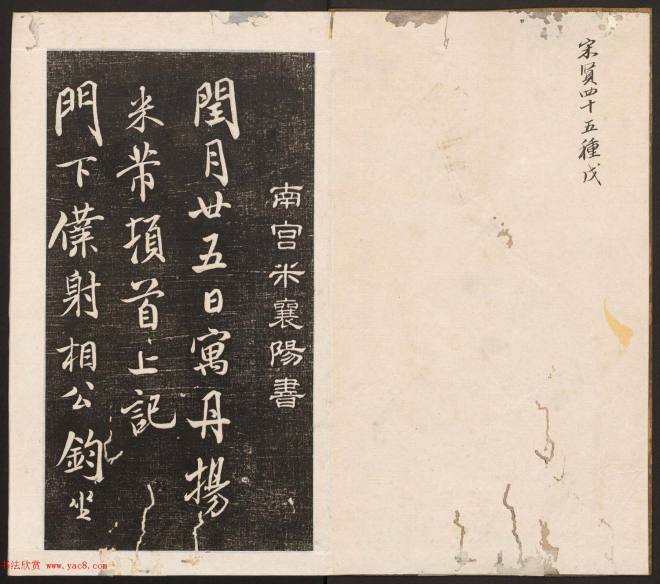 宋賢四十五種戊
南宫米襄陽書
閏月廿五日寓丹揚
米芾頓首上記
門下僕射相公鈞坐
书法欣赏 www.yac8.com